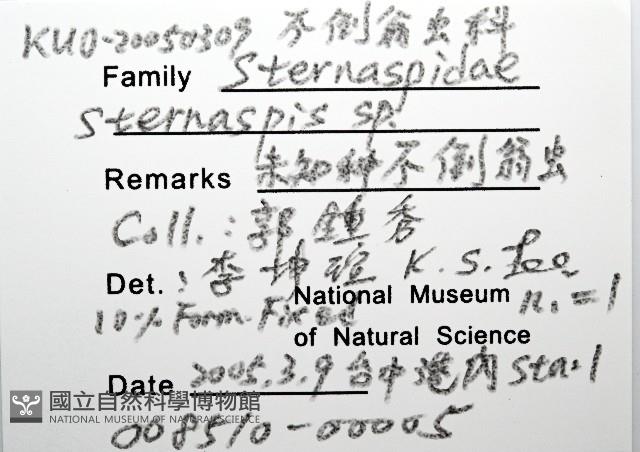 KUO-20050309 不倒翁虫科
Family Sternaspidae
Sternaspis sp.
Remarks 未知种不倒翁虫
Coll.: 郭鍾秀
Det.: 李坤瑄 K. S. Lee
National Museum n.=1
10% Form. Fixed
of Natural Science
Date 2005.3.9 台中港內 Sta.1
國立自然科學博物館
NATIONAL MUSEUM OF NATURAL SCIENCE
008510-00005